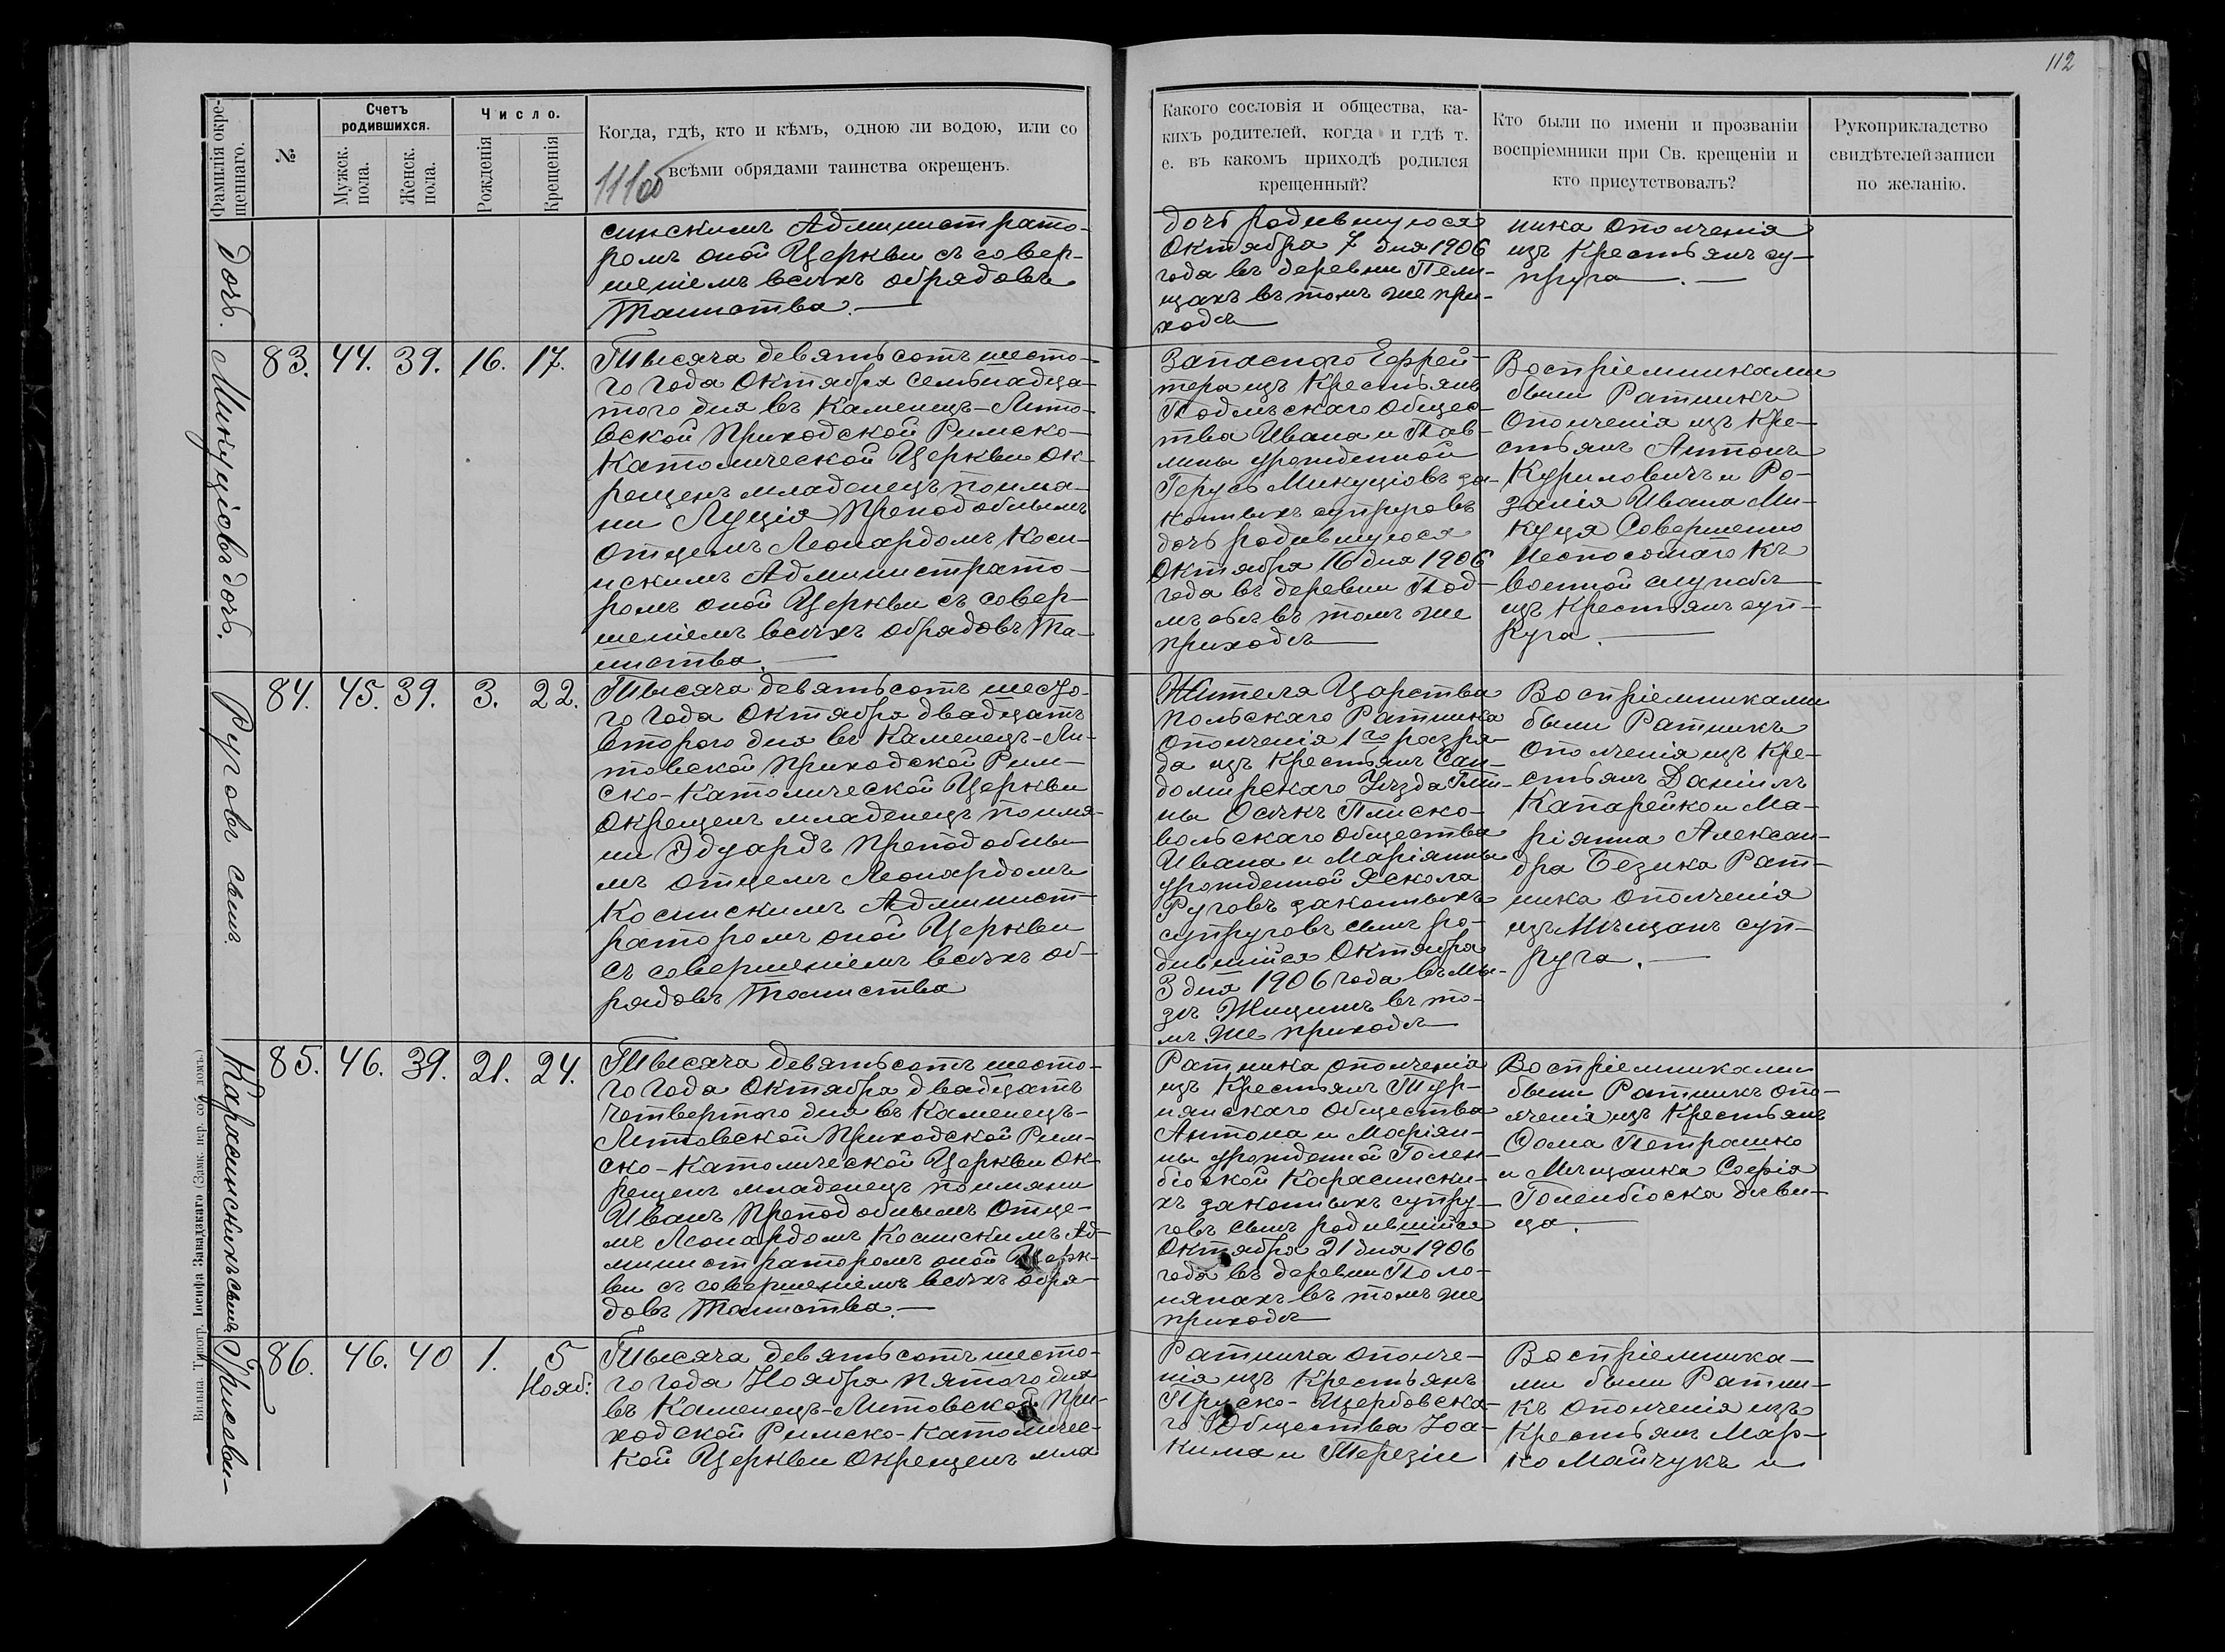 112
Фамилія окрещеннаго.
№
Счетъ родившихся.
Мужск. пола.
Женск. пола.
Число.
Рожденія
Крещенія
Когда, гдѣ, кто и кѣмъ, одною ли водою, или со
всѣми обрядами таинства окрещенъ.
Какого сословія и общества, ка-
кихъ родителей, когда и гдѣ т.
е. въ какомъ приходѣ родился
крещенный?
Кто были по имени и прозваніи
воспріемники при Св. крещеніи и
кто присутствовалъ?
Рукоприкладство
свидѣтелей записи
по желанію.
дочь.
синскимъ Администрато-
ромъ оной Церкви съ совер-
шеніемъ всѣхъ обрядовъ
Таинства.—
дочь родившуюся
Октября 7 дня 1906
года въ деревни Пели-
щахъ въ томъ же при-
ходѣ
ника Ополченія
изъ Крестьянъ су-
пруга.—
Микуціовъ дочь.
83. 44. 39. 16. 17.
Тысяча девятьсотъ шесто-
го года Октября семьнадца-
того дня въ Каменецъ-Лито-
вской Приходской Римско-
Католической Церкви Ок-
рещенъ младенецъ поиме-
ни Луція Преподобнымъ
Отцемъ Леонардомъ Коси-
нскимъ Администрато-
ромъ оной Церкви съ совер-
шеніемъ всѣхъ обрядовъ Та-
инства.—
Запаснаго Ефрей-
тера изъ Крестьянъ
Подлѣскаго Общес-
тва Ивана и Пав-
лины урожденной
Герусъ Микуціовъ за-
конныхъ супруговъ
дочь родившуюся
Октября 16 дня 1906
года въ деревни Под-
лѣсьѣ въ томъ же
приходѣ
Воспріемниками
были Ратникъ
Ополченія изъ Кре-
стьянъ Антонъ
Куриловичъ и Ро-
залія Ивана Ми-
куця Совершенно
Неспособнаго къ
военной службѣ
изъ Крестьянъ суп-
руга.—
Руговъ сынъ.
84. 45. 39. 3. 22.
Тысяча девятьсотъ шесто-
го года Октября двадцать
второго дня въ Каменецъ-Ли-
товской Приходской Рим-
ско-Католической Церкви
Окрещенъ младенецъ поимя-
ни Эдуардъ Преподобны-
мъ отцемъ Леонардомъ
Косинскимъ Админист-
раторомъ оной Церкви
съ совершеніемъ всѣхъ об-
рядовъ Таинства
Жителя Царства
Польскаго Ратника
Ополченія 1го разря-
да изъ Крестьянъ Сан-
домирскаго Уѣзда Гми-
ны Осѣкъ Плиско-
вольскаго Общества
Ивана и Маріянны
урожденной Яскола
Руговъ законныхъ
супруговъ сынъ ро-
дившійся Октября
3 дня 1906 года въ мы-
зѣ Жицинъ въ то-
мъ же приходѣ
Воспріемниками
были Ратникъ
Ополченія изъ Кре-
стьянъ Даніилъ
Капарейко и Ма-
ріянна Алексан-
дра Безика Рат-
ника ополченія
изъ Мѣщанъ суп-
руга.—
Карасинскихъ сынъ
85. 46. 39. 21. 24.
Тысяча девятьсотъ шесто-
го года Октября двадцать
четвертого дня въ Каменецъ-
Литовской Приходской Рим-
ско-Католической Церкви Ок-
рещенъ младенецъ поимяни
Иванъ Преподобнымъ Отце-
мъ Леонардомъ Косинскимъ Ад-
министраторомъ оной Церк-
ви съ совершеніемъ всѣхъ обря-
довъ Таинства.—
Ратника ополченія
изъ Крестьянъ Тур-
нянскаго Общества
Антона и Маріян-
ны урожденной Голен-
біоской Карасински-
хъ законныхъ супру-
говъ сынъ родившійся
Октября 21 дня 1906
года въ деревни Толо-
нянахъ въ томъ же
приходѣ
Воспріемниками
были Ратникъ опо-
лченія изъ Крестьянъ
Фома Петрашко
и Мѣщанка Софія
Голенбіоска дѣви-
ца.—
Грисеви-
86. 46. 40 1. 5 Нояб:
Тысяча девятьсотъ шесто-
го года Ноября пятого дня
въ Каменецъ-Литовской При-
ходской Римско-Католичес-
кой Церкви Окрещенъ мла
Ратника ополче-
нія изъ Крестьянъ
Пруско-Щербовска-
го Общества Іоа-
кима и Терезіи
Воспріемника-
ми были Ратни-
къ Ополченія изъ
Крестьянъ Мар-
ко Майчукъ и
Вильна. Типогр. Іосифа Завадзкаго (Замк. пер. соб. домъ.)